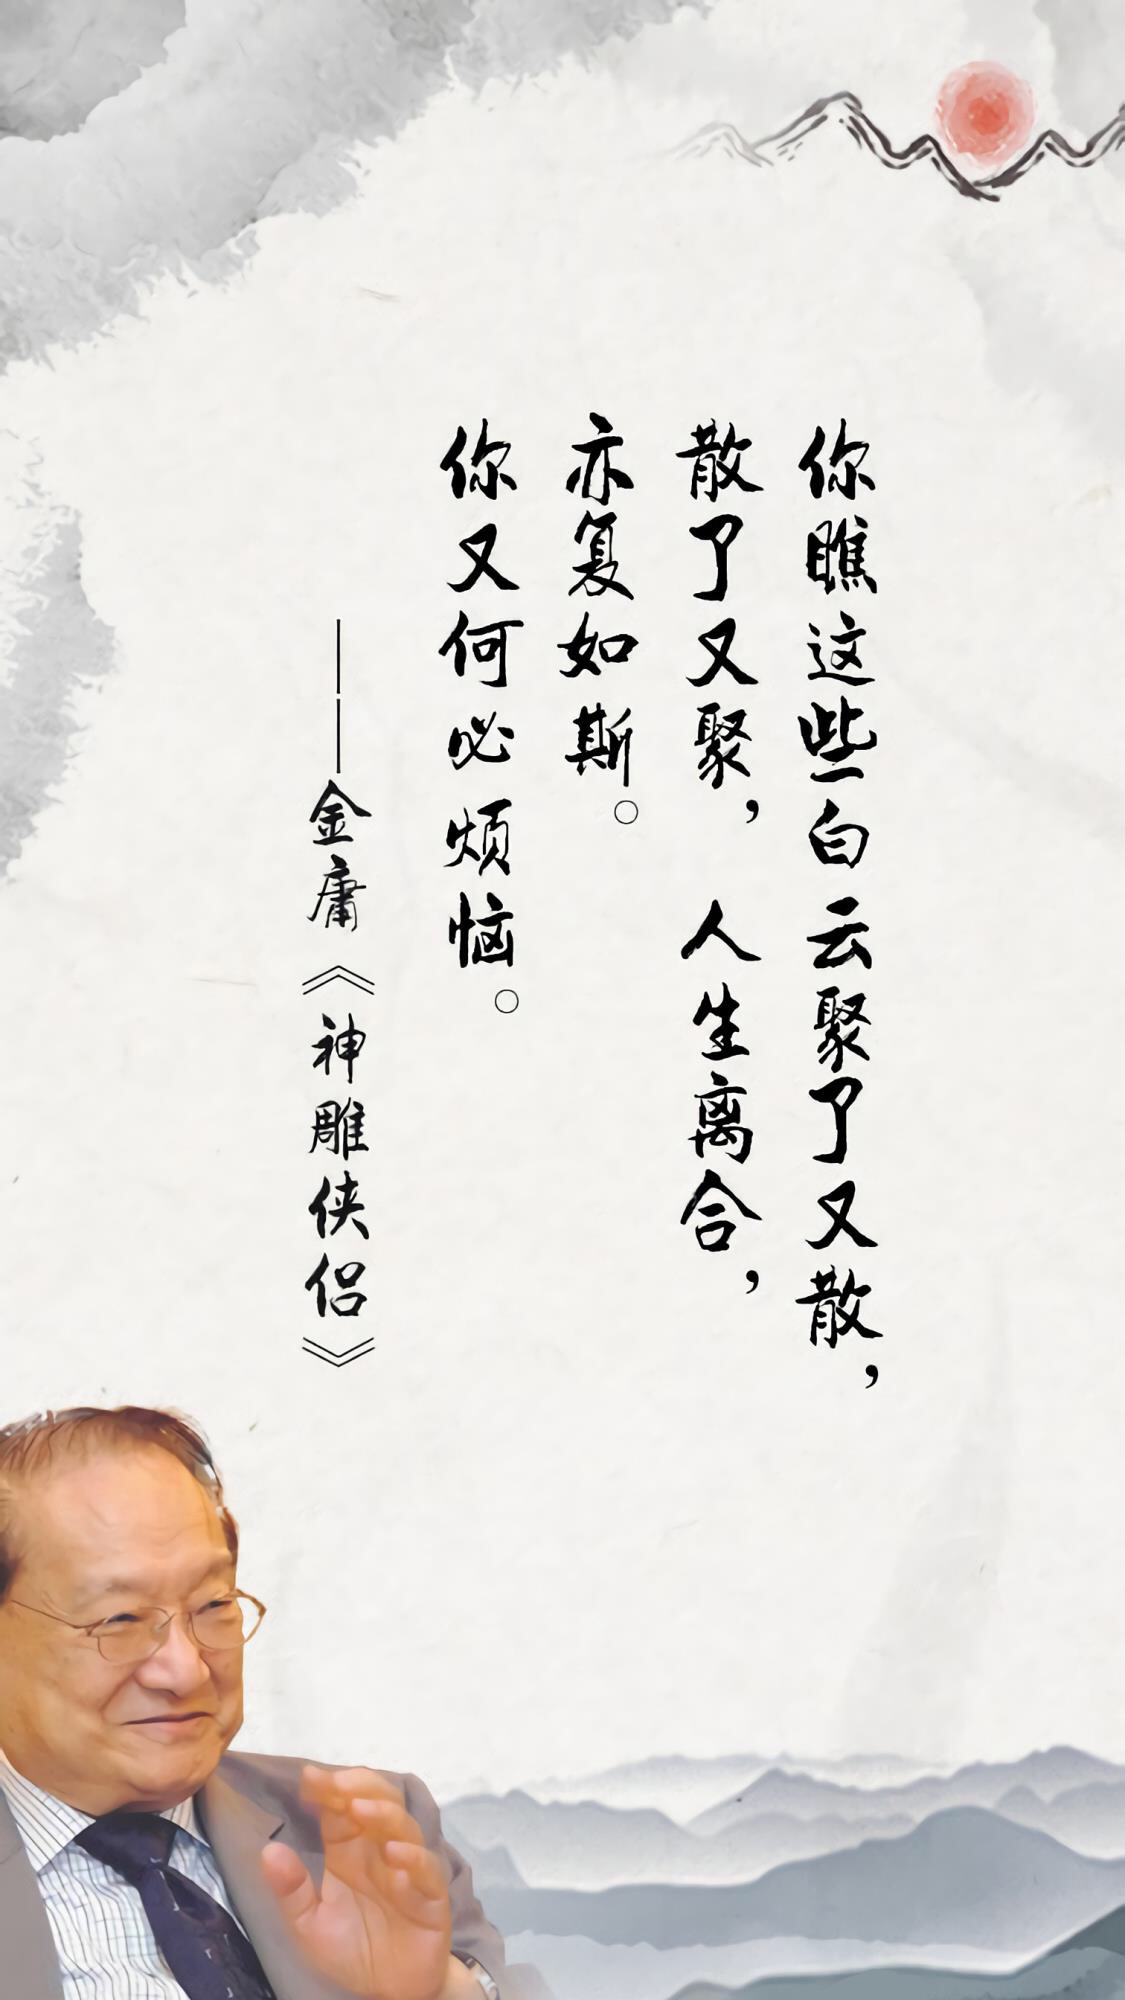 你瞧这些白云聚了又散，
散了又聚，人生离合，
亦复如斯。
你又何必烦恼。
——金庸《神雕侠侣》